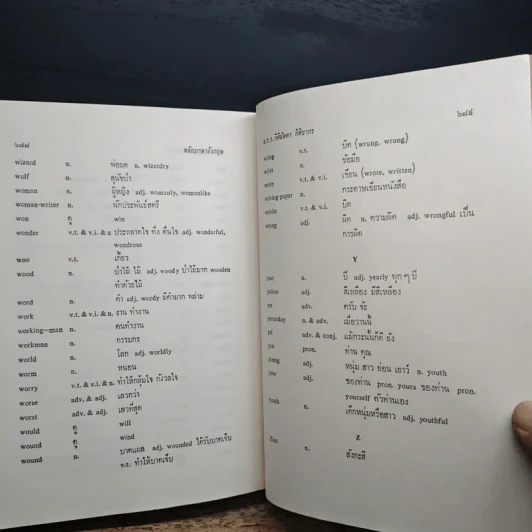 ๒๘๔ หลักภาษาอังกฤษ
wizard n. พ่อมด n. wizardry
wolf n. สุนัขป่า
woman n. ผู้หญิง adj. womanly, womanlike
woman-writer n. นักประพันธ์สตรี
won ดู win
wonder v.t. & v.i. & n ประหลาดใจ ทึ่ง ตื่นใจ adj. wonderful,
wondrous
woo v.t. เกี้ยว
wood n. ป่าไม้ ไม้ adj. woody ป่าไม้มาก wooden
ทำด้วยไม้
word n. คำ adj. wordy มีคำมาก พล่าม
work v.t. & v.i. & n. งาน ทำงาน
working-man n. คนทำงาน
workman n. กรรมกร
world n. โลก adj. worldly
worm n. หนอน
worry v.t. & v.i. & n. ทำให้กลุ้มใจ กังวลใจ
worse adv. & adj. เลวกว่า
worst adv. & adj. เลวที่สุด
would ดู will
wound ดู wind
wound n. บาดแผล adj. wounded ได้รับบาดเจ็บ
v.t. ทำให้บาดเจ็บ
๒๘๕
กิตินัดดา กิติยากร
wring v.t. บิด (wrung, wrung)
wrist n. ข้อมือ
write v.t. & v.i. เขียน (wrote, written)
writing-paper n. กระดาษเขียนหนังสือ
writhe v.t. & v.i. บิด
wrong adj. ผิด n. ความผิด adj. wrongful เป็น
การผิด
Y
year n. ปี adj. yearly ทุก ๆ ปี
yellow adj. สีเหลือง มีสีเหลือง
yes adv. ครับ จ้ะ
yesterday n. & adv. เมื่อวานนี้
yet adv. & conj. แม้กระนั้นก็ดี ยัง
you pron. ท่าน คุณ
young adj. หนุ่ม สาว อ่อน เยาว์ n. youth
your adj. ของท่าน pron. yours ของท่าน pron.
yourself ตัวท่านเอง
youth n. เด็กหนุ่มหรือสาว adj. youthful
Z
Zinc n. สังกะสี